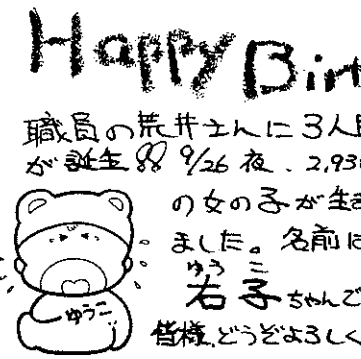 Happy Birt
職員の荒井さんに3人目
が誕生!! 9/26 夜、2,93
の女の子が生ま
ました。名前は
ゆう こ
右子ちゃんで
皆様、どうぞよろしく
ゆうこ